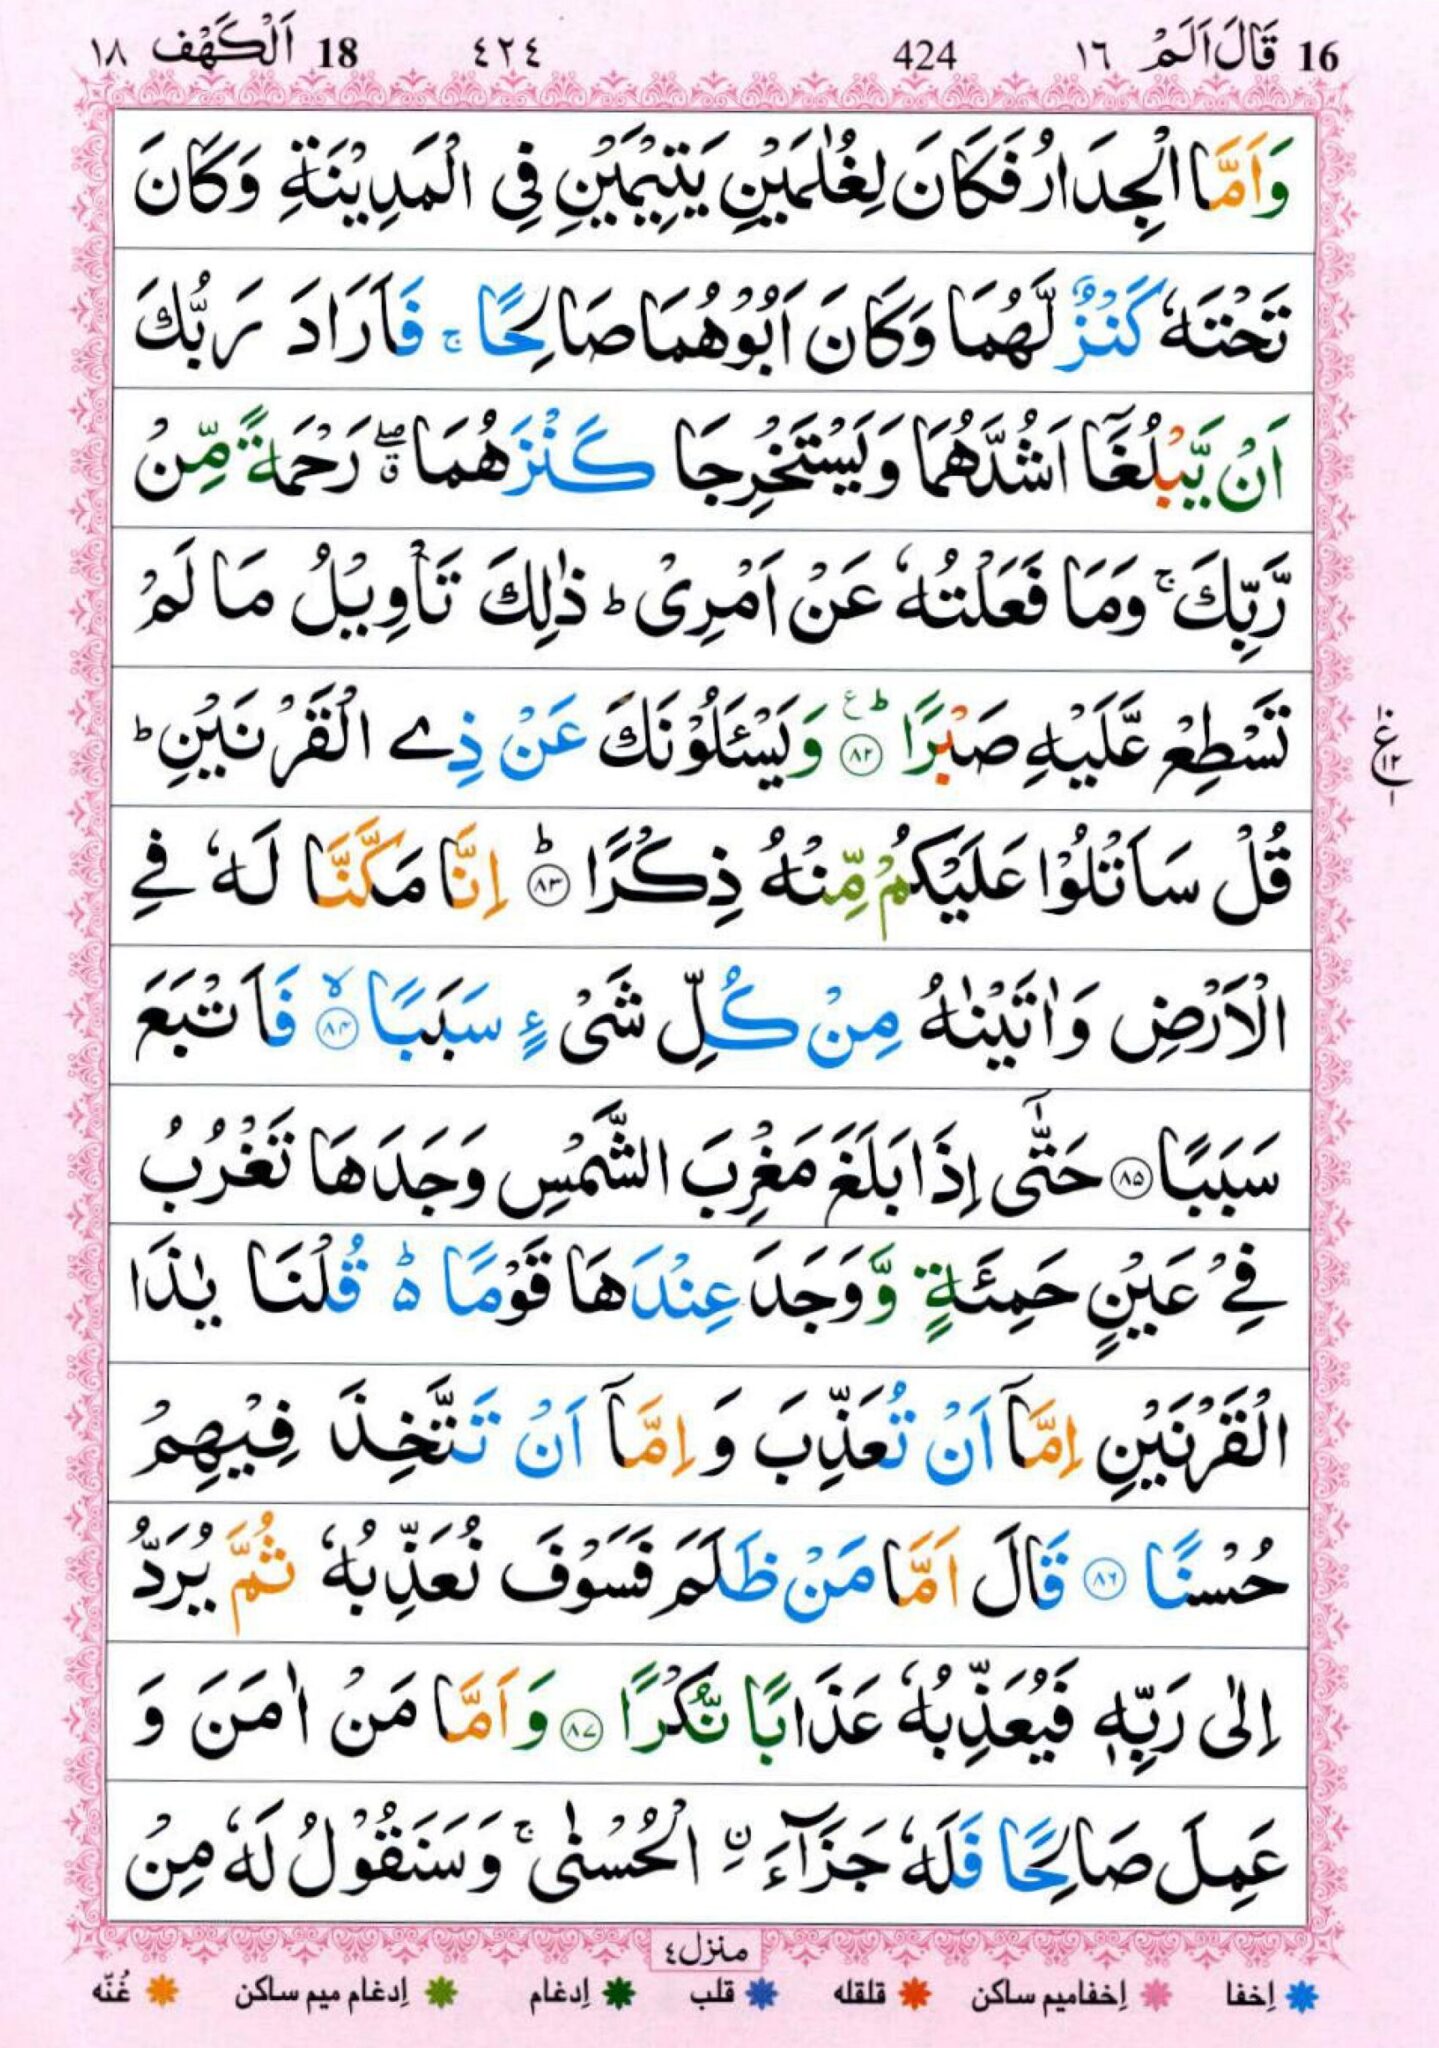 16 قَالَ اَلَمْ ١٦ 424 ٤٢٤ 18 اَلْكَهْف ١٨
وَاَمَّا الْجِدَارُ فَكَانَ لِغُلٰمَيْنِ يَتِيْمَيْنِ فِي الْمَدِيْنَةِ وَكَانَ
تَحْتَهٗ كَنْزٌ لَّهُمَا وَكَانَ اَبُوْهُمَا صَالِحًا ۚ فَاَرَادَ رَبُّكَ
اَنْ يَّبْلُغَاۤ اَشُدَّهُمَا وَيَسْتَخْرِجَا كَنْزَهُمَا ۖ ق رَحْمَةً مِّنْ
رَّبِّكَ ۚ وَمَا فَعَلْتُهٗ عَنْ اَمْرِىْ ؕ ذٰلِكَ تَاْوِيْلُ مَا لَمْ
تَسْطِعْ عَّلَيْهِ صَبْرًا ؕ ع ۝۸۲ وَيَسْـَٔلُوْنَكَ عَنْ ذِے الْقَرْنَيْنِ ؕ
ع
١٠
١٢
١
قُلْ سَاَتْلُوْا عَلَيْكُمْ مِّنْهُ ذِكْرًا ؕ ۝۸۳ اِنَّا مَكَّنَّا لَهٗ فِي
الْاَرْضِ وَاٰتَيْنٰهُ مِنْ كُلِّ شَىْءٍ سَبَبًا ۙ ۝۸۴ فَاَتْبَعَ
سَبَبًا ۝۸۵ حَتّٰۤى اِذَا بَلَغَ مَغْرِبَ الشَّمْسِ وَجَدَهَا تَغْرُبُ
فِيْ عَيْنٍ حَمِئَةٍ وَّوَجَدَ عِنْدَهَا قَوْمًا ؕ۬ قُلْنَا يٰذَا
الْقَرْنَيْنِ اِمَّاۤ اَنْ تُعَذِّبَ وَاِمَّاۤ اَنْ تَتَّخِذَ فِيْهِمْ
حُسْنًا ۝۸۶ قَالَ اَمَّا مَنْ ظَلَمَ فَسَوْفَ نُعَذِّبُهٗ ثُمَّ يُرَدُّ
اِلٰى رَبِّهٖ فَيُعَذِّبُهٗ عَذَابًا نُّكْرًا ۝۸۷ وَاَمَّا مَنْ اٰمَنَ وَ
عَمِلَ صَالِحًا فَلَهٗ جَزَآءَ نِ الْحُسْنٰى ۚ وَسَنَقُوْلُ لَهٗ مِنْ
منزل ٤
اِخفا اِخفامیم ساکن قلقله قلب اِدغام اِدغام میم ساکن غُنّه